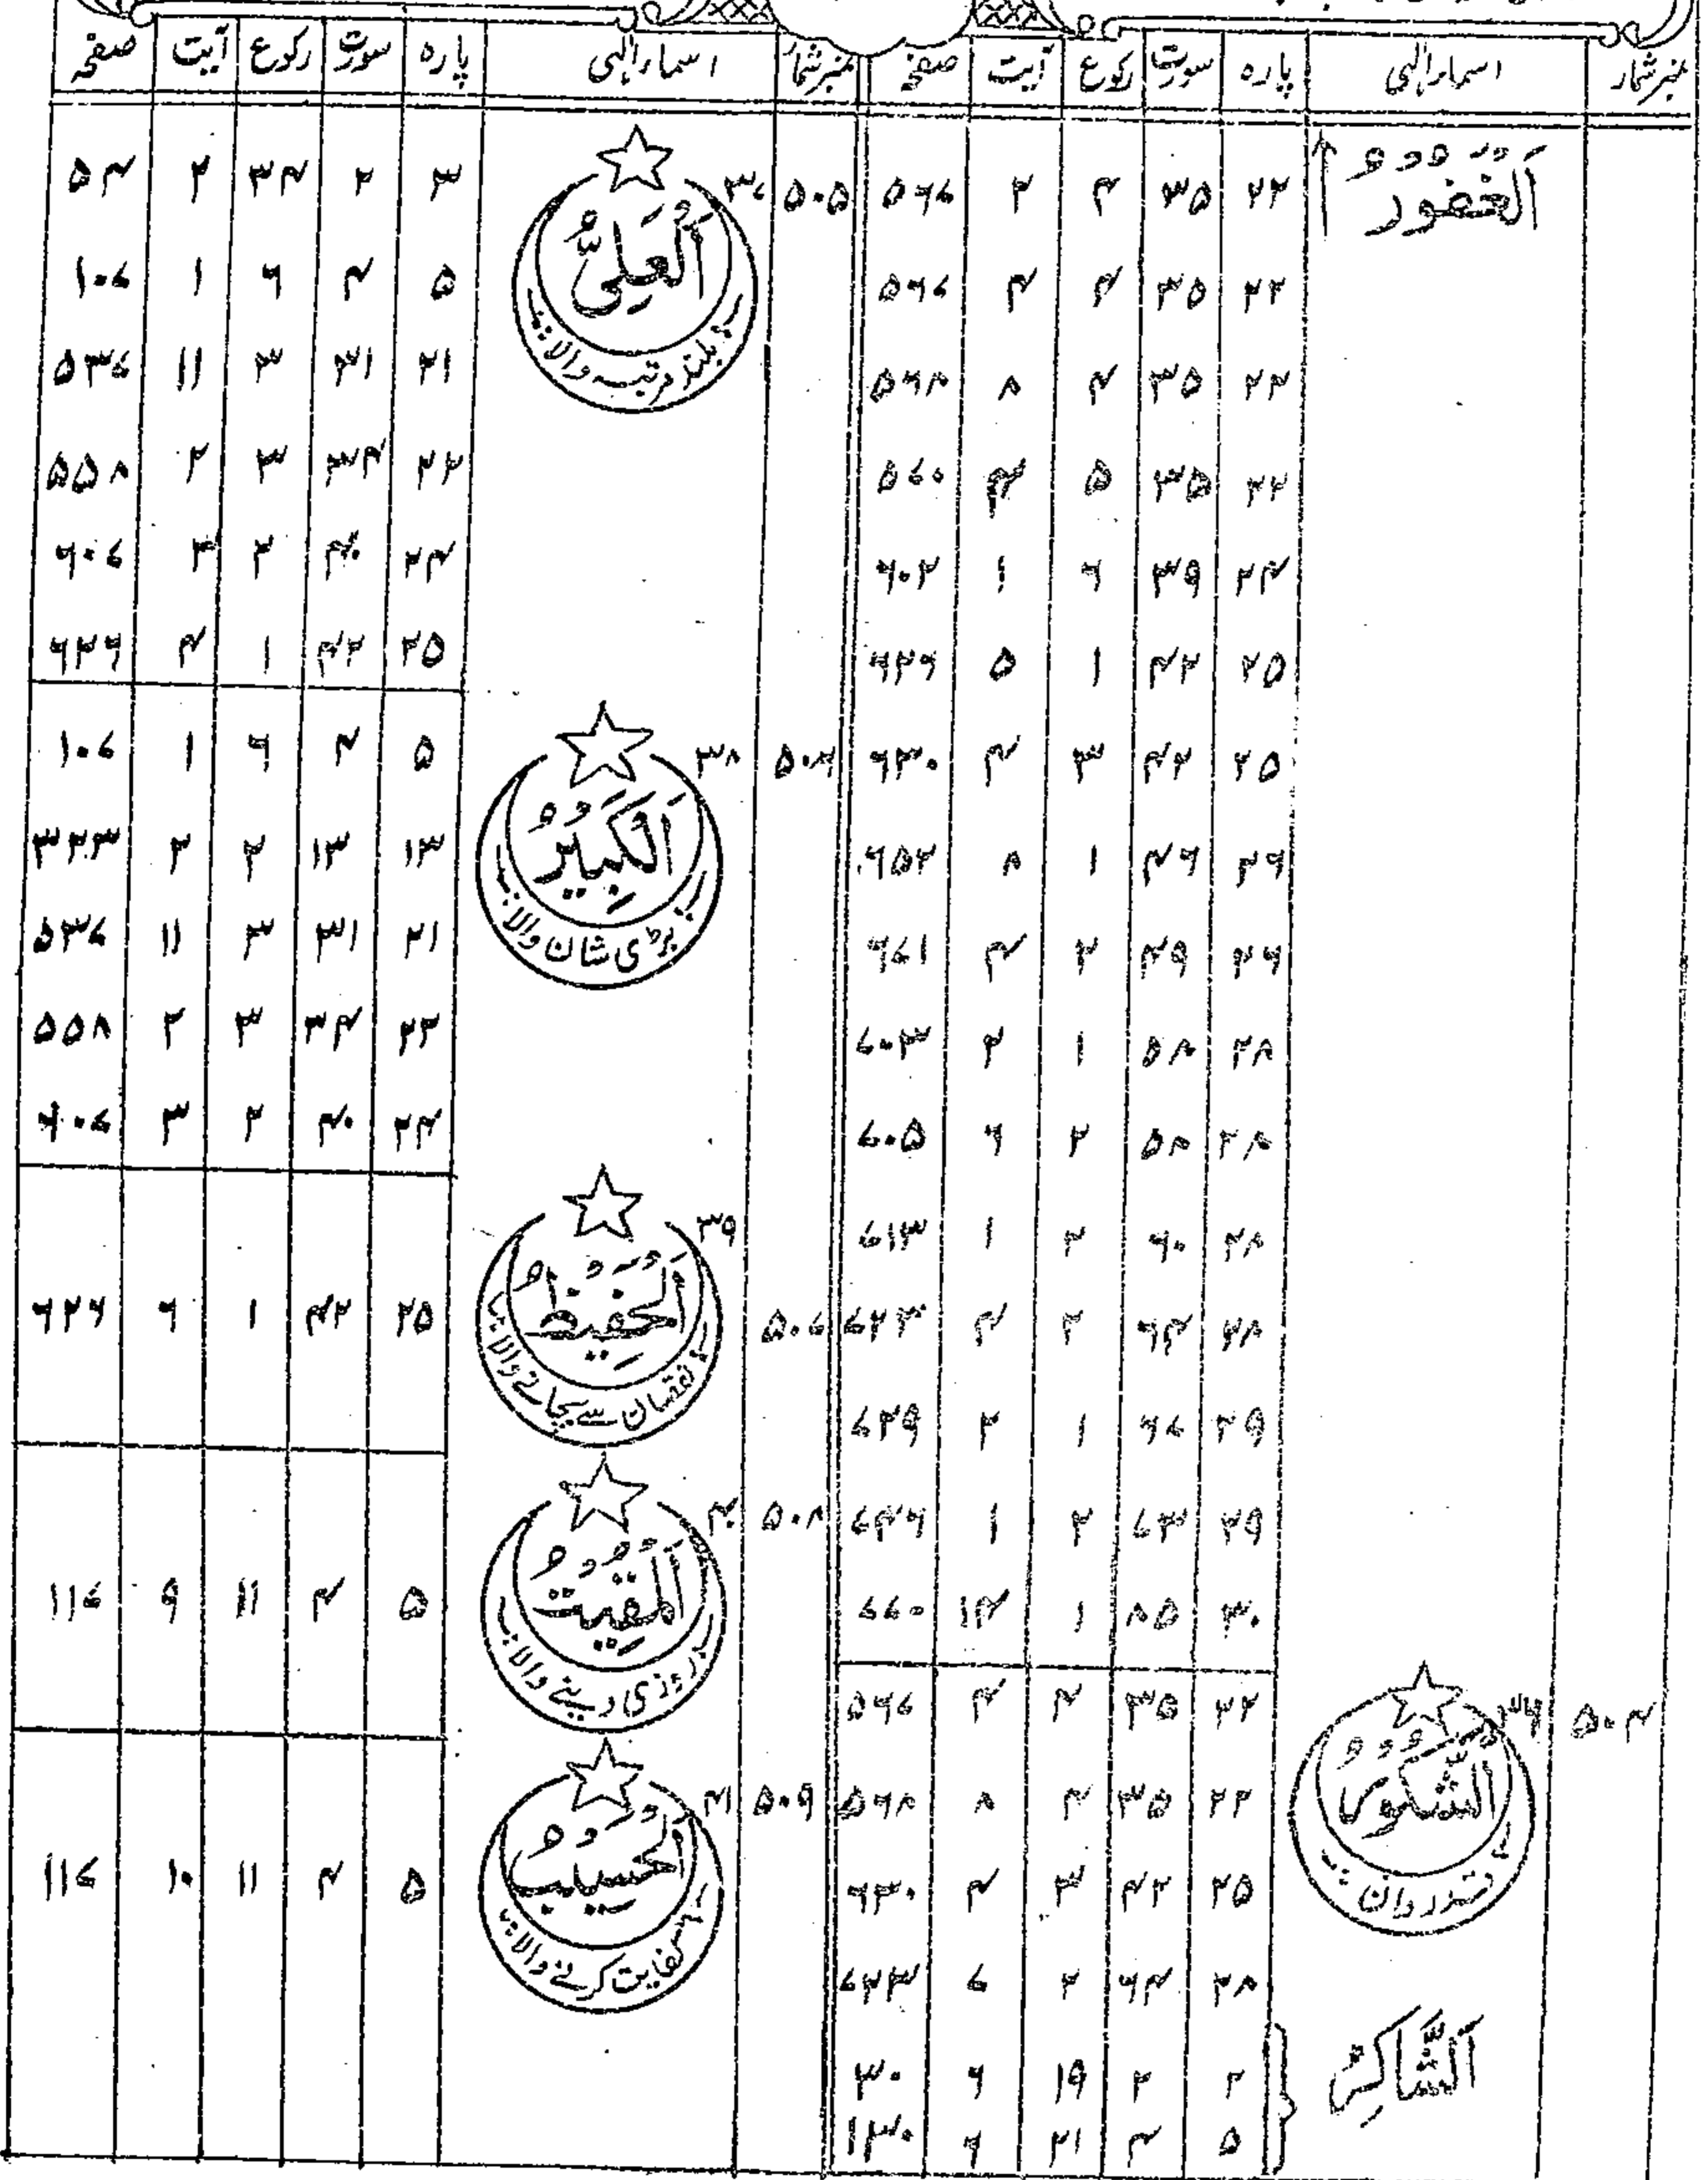 نمبر شمار | اسماء الٰہی | پارہ | سورت | رکوع | آیت | صفحہ
اَلْغَفُورُ ↑ | ۲۲ | ۳۵ | ۴ | ۲ | ۵۶۷
۲۲ | ۳۵ | ۴ | ۴ | ۵۶۷
۲۲ | ۳۵ | ۴ | ۸ | ۵۶۸
۲۲ | ۳۵ | ۵ | ۴ | ۵۷۰
۲۴ | ۳۹ | ۶ | ۱ | ۶۰۲
۲۵ | ۴۲ | ۱ | ۵ | ۶۲۶
۲۵ | ۴۲ | ۳ | ۴ | ۶۳۰
۲۶ | ۴۶ | ۱ | ۸ | ۶۵۲
۲۶ | ۴۹ | ۲ | ۴ | ۶۷۱
۲۸ | ۵۸ | ۱ | ۲ | ۷۰۳
۲۸ | ۵۸ | ۲ | ۶ | ۷۰۵
۲۸ | ۶۰ | ۲ | ۱ | ۷۱۳
۲۸ | ۶۴ | ۲ | ۴ | ۷۲۳
۲۹ | ۶۷ | ۱ | ۲ | ۷۲۹
۲۹ | ۷۳ | ۲ | ۱ | ۷۴۶
۳۰ | ۸۵ | ۱ | ۱۴ | ۷۷۰
۵۰۴ | ۳۶ | اَلشَّكُورُ | ۲۲ | ۳۵ | ۴ | ۴ | ۵۶۷
قدردان
۲۲ | ۳۵ | ۴ | ۸ | ۵۶۸
۲۵ | ۴۲ | ۳ | ۴ | ۶۳۰
۲۸ | ۶۴ | ۲ | ۷ | ۷۲۳
اَلشَّاكِرُ | ۲ | ۲ | ۱۹ | ۶ | ۳۰
۵ | ۴ | ۲۱ | ۶ | ۱۳۰
نمبر شمار | اسماء الٰہی | پارہ | سورت | رکوع | آیت | صفحہ
۵۰۵ | ۳۷ | اَلْعَلِیُّ | ۳ | ۲ | ۳۴ | ۲ | ۵۴
بلند مرتبہ والا
۵ | ۴ | ۶ | ۱ | ۱۰۷
۲۱ | ۳۱ | ۳ | ۱۱ | ۵۳۷
۲۲ | ۳۴ | ۳ | ۲ | ۵۵۸
۲۴ | ۴۰ | ۲ | ۳ | ۶۰۷
۲۵ | ۴۲ | ۱ | ۴ | ۶۲۶
۵۰۶ | ۳۸ | اَلْكَبِیْرُ | ۵ | ۴ | ۶ | ۱ | ۱۰۷
بڑی شان والا
۱۳ | ۱۳ | ۲ | ۲ | ۳۲۳
۲۱ | ۳۱ | ۳ | ۱۱ | ۵۳۷
۲۲ | ۳۴ | ۳ | ۲ | ۵۵۸
۲۴ | ۴۰ | ۲ | ۳ | ۶۰۷
۵۰۷ | ۳۹ | اَلْحَفِیْظُ | ۲۵ | ۴۲ | ۱ | ۶ | ۶۲۶
نقصان سے بچانے والا
۵۰۸ | ۴۰ | اَلْمُقِیْتُ | ۵ | ۴ | ۱۱ | ۹ | ۱۱۷
روزی دینے والا
۵۰۹ | ۴۱ | اَلْحَسِیْبُ | ۵ | ۴ | ۱۱ | ۱۰ | ۱۱۷
کفایت کرنے والا